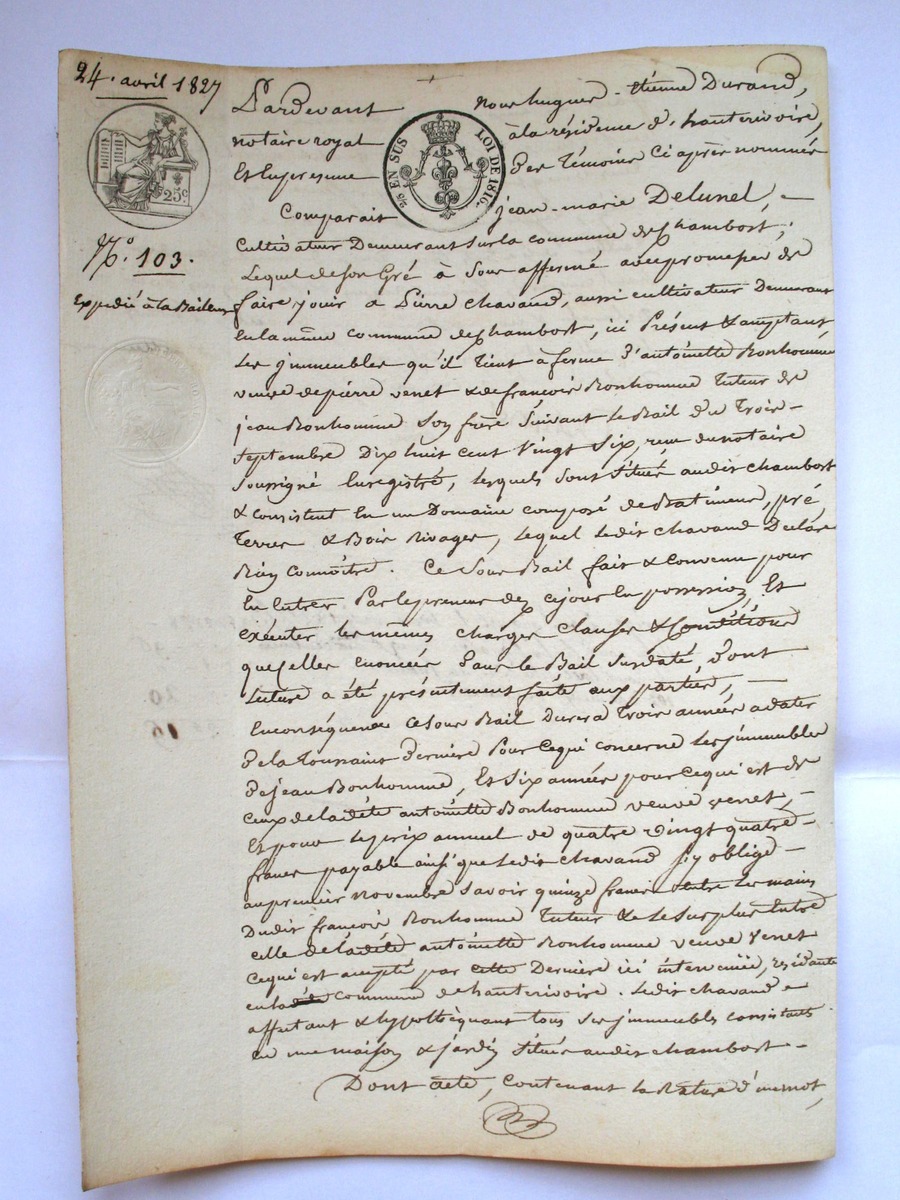 24. avril 1827
25c
N.o 103.
Expédié à la Bailleuse
EN SUS LOI DE 1816
Pardevant nous hugues-étienne Durand,
notaire royal à la résidence d'hauterivoire,
Et En presence Des Témoins Ci après nommés
Comparait jean-marie Delunel, —
Cultivateur Demeurant sur la commune de Chambost;
Lequel de son Gré à Sous affermé avec promesse de
faire jouir à Pierre Chavand, aussi cultivateur Demeurant
En la même commune de Chambost, ici Présent & acceptant
Les jmmeubles qu'il Tient à ferme d'antoinette Bonhomme
veuve de pierre venet & de françois Bonhomme Tuteur de
jean Bonhomme Son frère Suivant Le Bail Du Trois —
Septembre Dix huit cent Vingt Six, reçu du notaire
Soussigné Enregistré, Lesquels Sont Situés audit Chambost
& consistent En un Domaine composé de Batiments, pré
Terres & Bois Rivages, Lequel Ledit Chavand Declare
Bien Connoître. Ce Sous Bail fait & Convenu pour
En Entrer Par Le preneur dez cejour En possession, Et
Exécuter Les mêmes Charges Clauses & Conditions
que Celles Enoncées Dans Le Bail Susdaté, Dont
Lecture a été présentement faite aux parties, —
En conséquence Ce Sous Bail Durera Trois années à dater
De La Toussaint Dernière Pour Ce qui concerne Les jmmeubles
De jean Bonhomme, Et Six années pour Ce qui est de
Ceux de Ladite antoinette Bonhomme veuve venet, —
Et pour Le prix annuel de quatre Vingt quatre —
francs payable ainsi que Ledit Chavand S'y oblige —
au premier novembre Savoir quinze francs Entre Les mains
Dudit françois Bonhomme Tuteur & Le Surplus Entre
celle de Ladite antoinette Bonhomme veuve Venet
Ce qui est accepté par Cette Dernière ici intervenüe, Résidante
en la commune de hauterivoire. Ledit Chavand
affectant & hypothéquant tous Ses jmmeubles Consistants
En une maison & jardin Situés audit Chambost —
Dont acte, Contenant La Rature d'un mot,